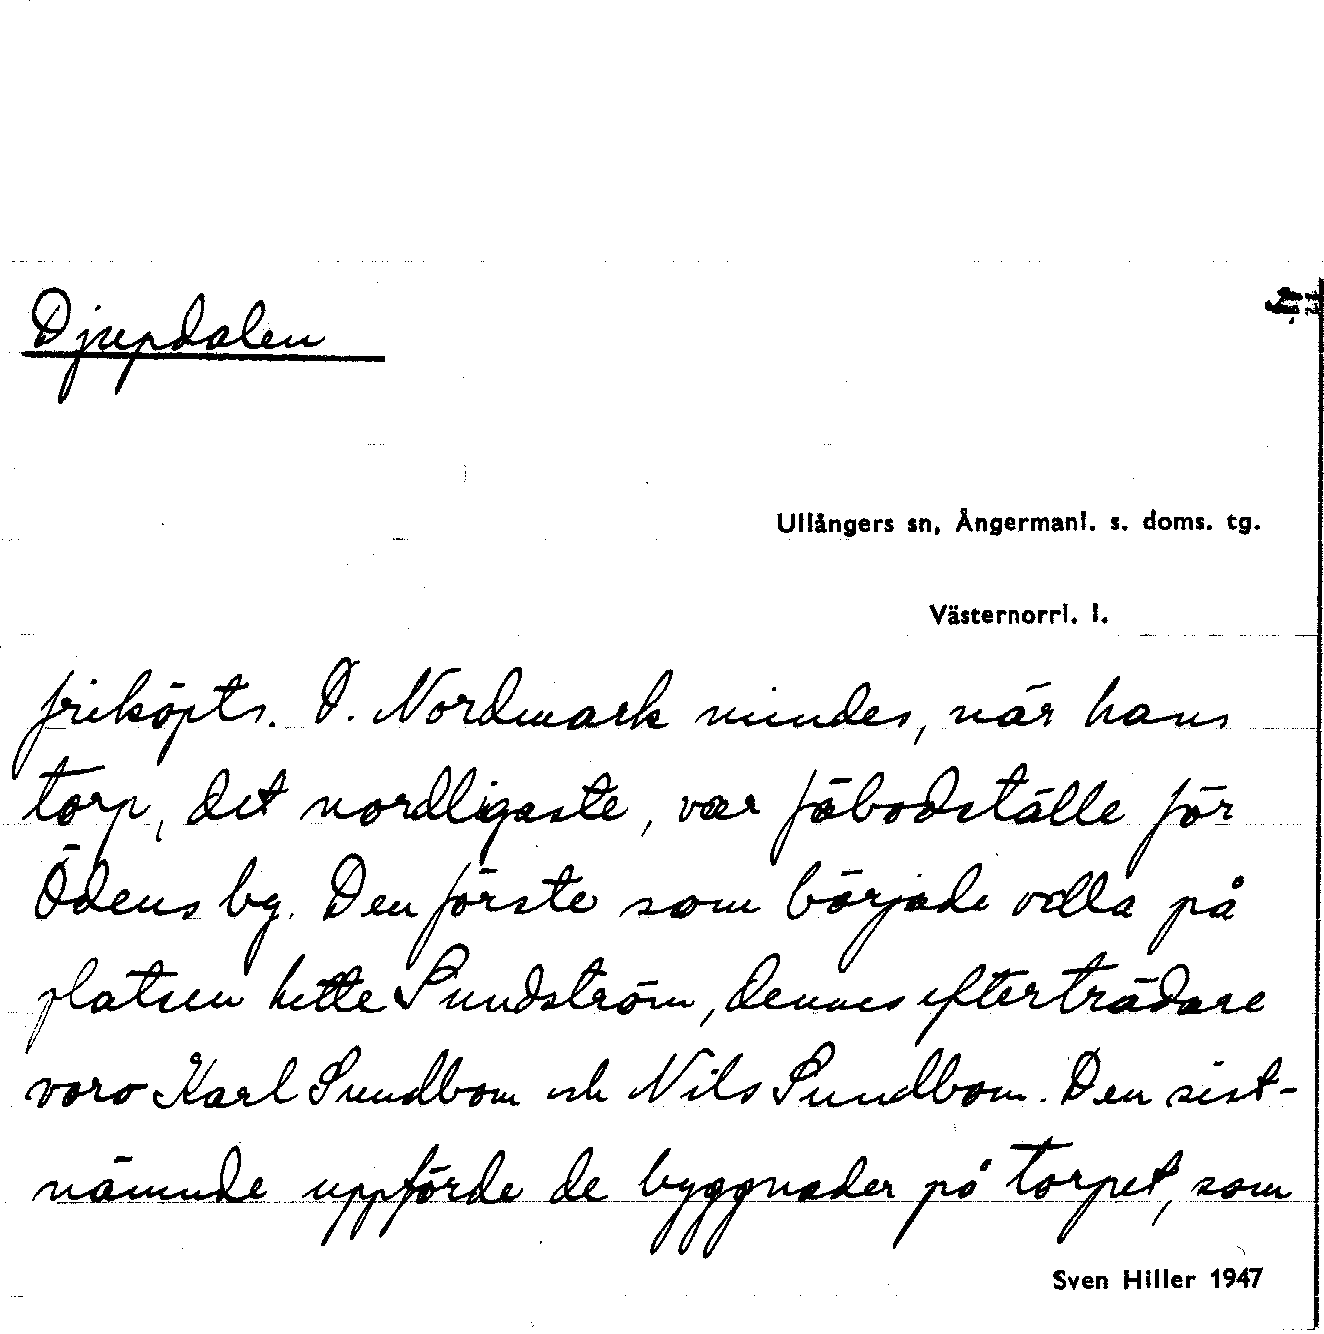 Djupdalen
Ullångers sn, Ångermanl. s. doms. tg.
Västernorrl. l.
friköpts. O. Nordmark mindes, när hans
torp, det nordligaste, var fäbodställe för
Ödens by. Den förste som började odla på
platsen hette Sundström, dennes efterträdare
voro Karl Sundbom och Nils Sundbom. Den sist-
nämnde uppförde de byggnader på torpet, som
Sven Hiller 1947